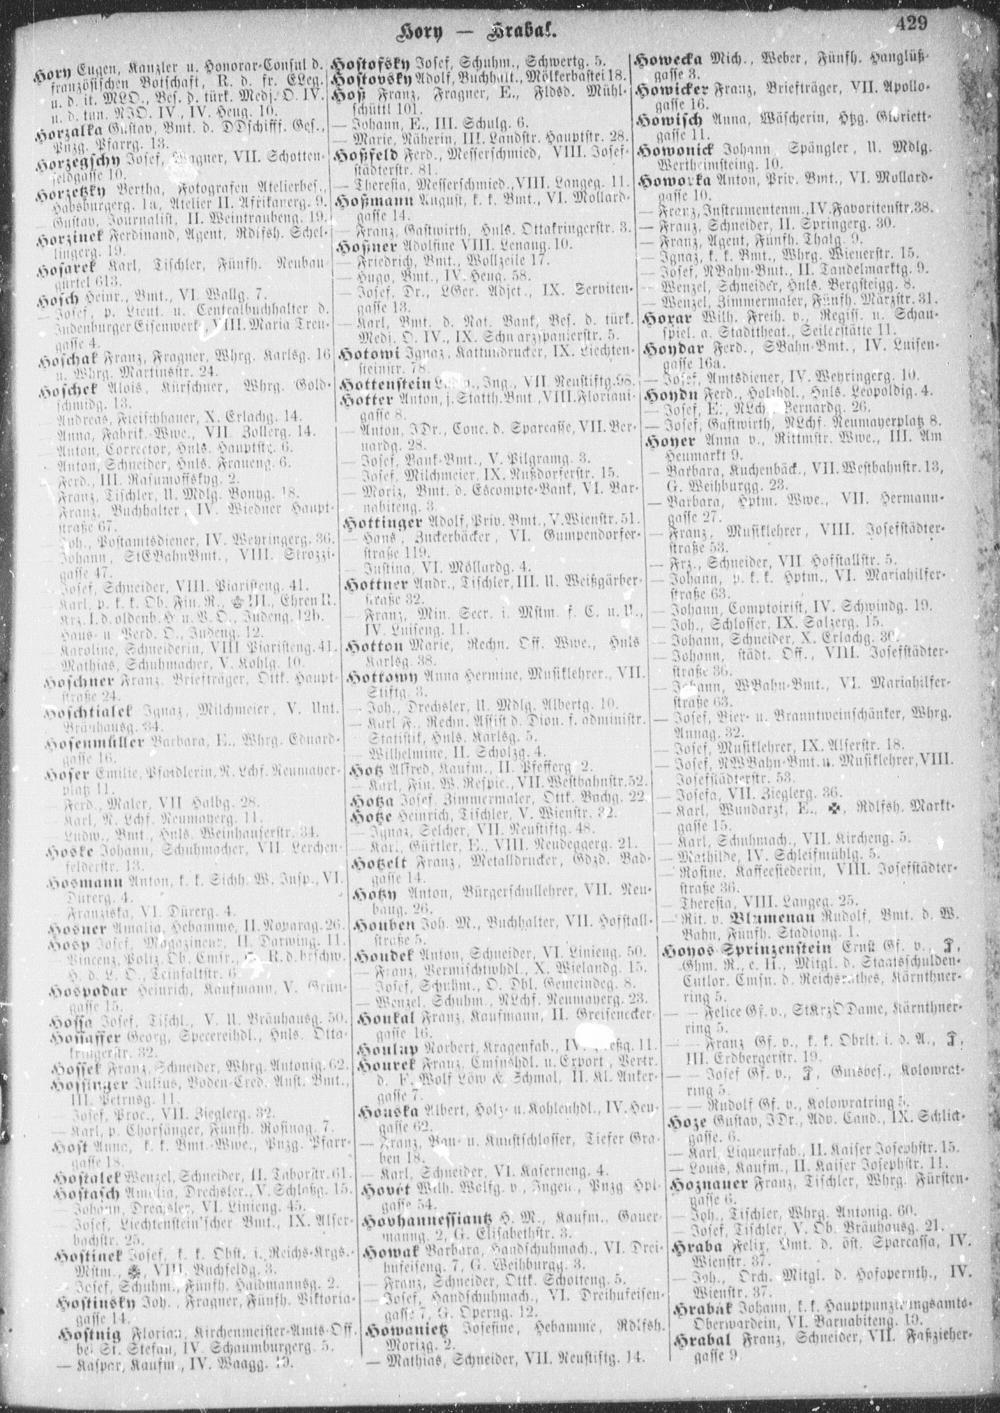 Hory — Hrabal.
429
Hory Eugen, Kanzler u. Honorar-Consul d.
französischen Botschaft, R. d. fr. ELeg.
u. d. it. MLO., Bes. d. türk. Medj. O. IV.
u. d. tun. NJO. IV, IV. Heug. 10.
Horzalka Gustav, Bmt. d. DDschifff. Ges.,
Pnzg. Pfarrg. 13.
Horzegschy Josef, Wagner, VII. Schotten-
feldgasse 10.
Horzetzky Bertha, Fotografen Atelierbes.,
Habsburgerg. 1a, Atelier II. Afrikanerg. 9.
— Gustav, Journalist, II. Weintraubeng. 19.
Horzinek Ferdinand, Agent, Rdlfsh. Schel-
lingerg. 19.
Hosarek Karl, Tischler, Fünfh. Neubau
gürtel 613.
Hosch Heinr., Bmt., VI. Wallg. 7.
— Josef, p. Lieut. u. Centralbuchhalter d.
Judenburger Eisenwerk, VIII. Maria Treu-
gasse 4.
Hoschak Franz, Fragner, Whrg. Karlsg. 16
u. Whrg. Martinsstr. 24.
Hoschek Alois, Kürschner, Whrg. Gold-
schmidg. 13.
— Andreas, Fleischhauer, X. Erlachg. 14.
— Anna, Fabrik.-Wwe., VII. Zollerg. 14.
— Anton, Corrector, Hnls. Hauptstr. 6.
— Anton, Schneider, Hnls. Fraueng. 6.
— Ferd., III. Rasumoffskyg. 2.
— Franz, Tischler, U. Mdlg. Bonyg. 18.
— Franz, Buchhalter, IV. Wiedner Haupt-
straße 67.
— Joh., Postamtsdiener, IV. Weyringerg. 36.
— Johann, StEBahnBmt., VIII. Strozzi-
gasse 47.
— Josef, Schneider, VIII. Piaristeng. 41.
— Karl, p. k. k. Ob. Fin. R., III., Ehren R.
Krz. I. d. oldenb. H. u. V. O., Judeng. 12b.
Haus- u. Verd. O., Judeng. 12.
— Karoline, Schneiderin, VIII. Piaristeng. 41.
— Mathias, Schuhmacher, V. Kohlg. 10.
Hoschner Franz, Briefträger, Ottk. Haupt-
straße 24.
Hoschtialek Ignaz, Milchmeier, V. Unt.
Bräuhausg. 34.
Hosenmüller Barbara, E., Whrg. Eduard-
gasse 16.
Hoser Emilie, Pfaidlerin, R. Lchf. Neumayer-
platz 11.
— Ferd., Maler, VII. Halbg. 28.
— Karl, N. Lchf. Neumayerg. 11.
— Ludw., Bmt., Hnls. Weinhauserstr. 34.
Hoske Johann, Schuhmacher, VII. Lerchen-
felderstr. 13.
Hosmann Anton, k. k. Sichh. W. Insp., VI.
Dürerg. 4.
— Franziska, VI. Dürerg. 4.
Hosner Amalia, Hebamme, II. Noparag. 26.
Hosp Josef, Magazineur, II. Darwing. 11.
— Vincenz, Poliz. Ob. Cmsr., R. d. brschw.
H. d. L. O., Teinfaltstr. 6.
Hospodar Heinrich, Kaufmann, V. Grün-
gasse 15.
Hossa Josef, Tischl., V. U. Bräuhausg. 50.
Hossasser Georg, Specereihdl., Hnls. Otta-
kringerstr. 32.
Hossek Franz, Schneider, Whrg. Antonig. 62.
Hossinger Julius, Boden-Cred. Anst. Bmt.,
III. Petrusg. 11.
— Josef, Proc., VII. Zieglerg. 32.
— Karl, p. Chorsänger, Fünfh. Rosinag. 7.
Host Anna, k. k. Bmt.-Wwe., Pnzg. Pfarr-
gasse 18.
Hostalek Wenzel, Schneider, II. Taborstr. 61.
Hostasch Amalia, Drechsler, V. Schloßg. 15.
— Johann, Drechsler, VI. Linieng. 45.
— Josef, Liechtenstein'scher Bmt., IX. Alser-
bachstr. 25.
Hostinek Josef, k. k. Obst. i. Reichs-Krgs.-
Mstm., VIII. Buchfeldg. 3.
— Josef, Schuhm., Fünfh. Haidmannsg. 2.
Hostinsky Joh., Fragner, Fünfh. Viktoria-
gasse 14.
Hostnig Florian, Kirchenmeister-Amts-Off.
bei St. Stefan, IV. Schaumburgerg. 5.
— Kaspar, Kaufm., IV. Waagg.
Hostofsky Josef, Schuhm., Schwertg. 5.
Hostovsky Adolf, Buchhalt., Mölkerbastei 18.
Hoß Franz, Fragner, E., Fldsd. Mühl-
schüttl 101.
— Johann, E., III. Schulg. 6.
— Marie, Näherin, III. Landstr. Hauptstr. 28.
Hoßfeld Ferd., Messerschmied, VIII. Josef-
städterstr. 81.
— Theresia, Messerschmied., VIII. Langeg. 11.
Hoßmann August, k. k. Bmt., VI. Mollard-
gasse 14.
— Franz, Gastwirth, Hnls. Ottakringerstr. 3.
Hoßner Adolfine VIII. Lenaug. 10.
— Friedrich, Bmt., Wollzeile 17.
— Hugo, Bmt., IV. Heug. 58.
— Josef, Dr., LGer. Adjct., IX. Serviten-
gasse 13.
— Karl, Bmt. d. Nat. Bank, Bes. d. türk.
Medj. O. IV., IX. Schwarzspanierstr. 5.
Hotowi Ignaz, Kattundrucker, IX. Liechten-
steinstr. 78.
Hottenstein Ing., VII. Neustiftg. 98.
Hotter Anton, j. Statth. Bmt., VIII. Floriani-
gasse 8.
— Anton, JDr., Conc. d. Sparcasse, VII. Ber-
nardg. 28.
— Josef, Bank-Bmt., V. Pilgramg. 3.
— Josef, Milchmeier, IX. Nußdorferstr. 15.
— Moriz, Bmt. d. Escompte-Bank, VI. Bar-
nabiteng. 3.
Hottinger Adolf, Priv. Bmt., V. Wienstr. 51.
— Hans, Zuckerbäcker, VI. Gumpendorfer-
straße 119.
— Justina, VI. Mollardg. 4.
Hottner Andr., Tischler, III. U. Weißgärber-
straße 32.
— Franz, Min. Secr. i. Mstm. f. C. u. U.,
IV. Luiseng. 11.
Hotton Marie, Rechn. Off. Wwe., Hnls
Karlsg. 38.
Hottowy Anna Hermine, Musiklehrer., VII.
Stiftg. 3.
— Joh., Drechsler, U. Mdlg. Albertg. 10.
— Karl F., Rechn. Assist. d. Dion. f. administr.
Statistik, Hnls. Karlsg. 5.
— Wilhelmine, II. Scholzg. 4.
Hotz Alfred, Kaufm., II. Pfefferg. 2.
— Karl, Fin. W. Respic., VII. Westbahnstr. 52.
Hotza Josef, Zimmermaler, Ottk. Bachg. 22.
Hotze Heinrich, Tischler, V. Wienstr. 82.
— Ignaz, Selcher, VII. Neustiftg. 48.
— Karl, Gürtler, E., VIII. Neudeggerg. 21.
Hotzelt Franz, Metalldrucker, Gdzd. Bad-
gasse 14.
Hotzy Anton, Bürgerschullehrer, VII. Neu-
baug. 26.
Houben Joh. M., Buchhalter, VII. Hofstall-
straße 5.
Houdek Anton, Schneider, VI. Linieng. 50.
— Franz, Vermischtwhdl., X. Wielandg. 15.
— Josef, Schuhm., O. Dbl. Gemeindeg. 8.
— Wenzel, Schuhm., NLchf. Neumayerg. 23.
Houkal Franz, Kaufmann, II. Greisenecker-
gasse 16.
Houlup Norbert, Kragenfab., IV. 11.
Hourek Franz, Emsnshdl. u. Export, Vertr.
d. F. Wolf Löw & Schmal, II. Kl. Anker-
gasse 7.
Houska Albert, Holz- u. Kohlenhdl., IV. Heu-
gasse 62.
— Franz, Bau- u. Kunstschlosser, Tiefer Gra-
ben 18.
— Karl, Schneider, VI. Kaserneng. 4.
Hovet Wilh. Wolfg. v., Ingen., Pnzg. Hpt-
gasse 54.
Hovhannessiantz H. M., Kaufm., Gauer-
manng. 2, G. Elisabethstr. 3.
Howak Barbara, Handschuhmach., VI. Drei-
hufeiseng. 7, G. Weihburgg. 3.
— Franz, Schneider, Ottk. Schotteng. 5.
— Josef, Handschuhmach., VI. Dreihufeisen-
gasse 7, G. Operng. 12.
Howanietz Josefine, Hebamme, Rdlfsh.
Morizg. 2.
— Mathias, Schneider, VII. Neustiftg. 14.
Howecka Mich., Weber, Fünfh. Hanglüß-
gasse 3.
Howicker Franz, Briefträger, VII. Apollo-
gasse 16.
Howisch Anna, Wäscherin, Hzg. Gloriett-
gasse 11.
Howonick Johann, Spängler, U. Mdlg.
Wertheimsteing. 10.
Howorka Anton, Priv. Bmt., VI. Mollard-
gasse 10.
— Franz, Instrumentenm., IV. Favoritenstr. 38.
— Franz, Schneider, II. Springerg. 30.
— Franz, Agent, Fünfh. Thalg. 9.
— Ignaz, k. k. Bmt., Whrg. Wienerstr. 15.
— Josef, NBahn-Bmt., II. Tandelmarktg. 9.
— Wenzel, Schneider, Hnls. Bergsteigg. 8.
— Wenzel, Zimmermaler, Fünfh. Märzstr. 31.
Hoxar Wilh. Freih. v., Regiss. u. Schau-
spiel. a. Stadttheat., Seilerstätte 11.
Hoydar Ferd., SBahn-Bmt., IV. Luisen-
gasse 16a.
— Josef, Amtsdiener, IV. Weyringerg. 10.
Hoydn Ferd., Holzhdl., Hnls. Leopoldig. 4.
— Josef, E., NLchf. Bernardg. 26.
— Josef, Gastwirth, NLchf. Neumayerplatz 8.
Hoyer Anna v., Rittmstr. Wwe., III. Am
Heumarkt 9.
— Barbara, Kuchenbäck., VII. Westbahnstr. 13,
G. Weihburgg. 23.
— Barbara, Hptm. Wwe., VII. Hermann-
gasse 27.
— Franz, Musiklehrer, VIII. Josefstädter-
straße 53.
— Frz., Schneider, VII. Hofstallstr. 5.
— Johann, p. k. k. Hptm., VI. Mariahilfer-
straße 63.
— Johann, Comptoirist, IV. Schwindg. 19.
— Joh., Schlosser, IX. Salzerg. 15.
— Johann, Schneider, X. Erlachg.
— Johann, städt. Off., VIII. Josefstädter-
straße 36.
— Johann, WBahn-Bmt., VI. Mariahilfer-
straße 63.
— Josef, Bier- u. Branntweinschänker, Whrg.
Annag. 32.
— Josef, Musiklehrer, IX. Alserstr. 18.
— Josef, NWBahn-Bmt. u. Musiklehrer, VIII.
Josefstädterstr. 53.
— Josefa, VII. Zieglerg. 36.
— Karl, Wundarzt, E., Rdlfsh. Markt-
gasse 15.
— Karl, Schuhmach., VII. Kircheng. 5.
— Mathilde, IV. Schleifmühlg. 5.
— Rosine, Kaffeesiederin, VIII. Josefstädter-
straße 36.
— Theresia, VIII. Langeg. 25.
— Rit. v. Blumenau Rudolf, Bmt. d. W.
Bahn, Fünfh. Stadiong. 1.
Hoyos Sprinzenstein Ernst Gf. v.,
Ghm. R., e. H., Mitgl. d. Staatsschulden-
Cntlor. Cmsn. d. Reichsrathes, Kärnthner-
ring 5.
— — Felice Gf. v., StKrzODame, Kärnthner-
ring 5.
— — Franz Gf. v., k. k. Obrlt. i. d. A.,
III. Erdbergerstr. 19.
— — Josef Gf. v., Gutsbes., Kolowrat-
ring 5.
— — Rudolf Gf. v., Kolowratring 5.
Hoze Gustav, JDr., Adv. Cand., IX. Schlick-
gasse 6.
— Karl, Liqueurfab., II. Kaiser Josefstr. 15.
— Louis, Kaufm., II. Kaiser Josephstr. 11.
Hoznauer Franz, Tischler, Whrg. Fürsten-
gasse 6.
— Joh., Tischler, Whrg. Antonig. 60.
— Josef, Tischler, V. Ob. Bräuhausg. 21.
Hraba Felix, Bmt. d. öst. Sparcassa, IV.
Wienstr. 37.
— Joh., Orch. Mitgl. d. Hofopernth., IV.
Wienstr. 37.
Hrabák Johann, k. k. Hauptpunzirungsamts-
Oberwardein, VI. Barnabiteng. 19.
Hrabal Franz, Schneider, VII. Faßzieher-
gasse 9.